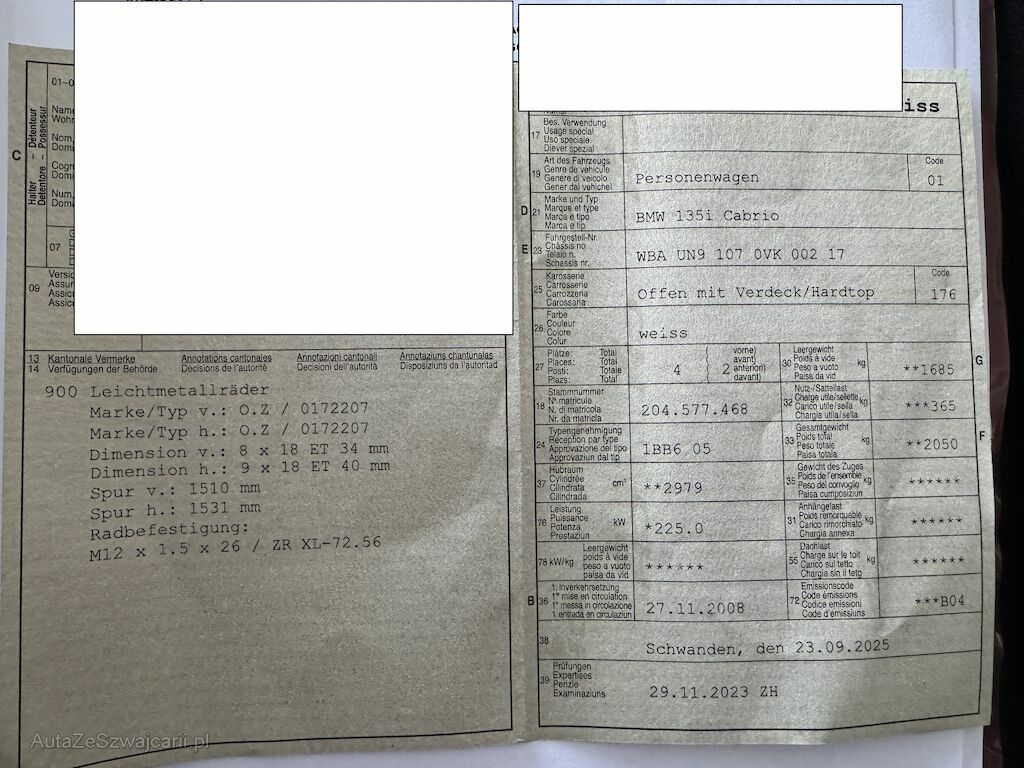 C
Halter – Détenteur
Detentore – Possessur
01–0
Name
Wohn
Nom,
Domi
Cogn
Domi
Num,
Dom
07
09
Versic
Assur
Assic
Assic
13 Kantonale Vermerke Annotations cantonales Annotazioni cantonali Annotaziuns chantunalas
14 Verfügungen der Behörde Décisions de l'autorité Decisioni dell'autorità Disposiziuns da l'autoritad
900 Leichtmetallräder
Marke/Typ v.: O.Z / 0172207
Marke/Typ h.: O.Z / 0172207
Dimension v.: 8 x 18 ET 34 mm
Dimension h.: 9 x 18 ET 40 mm
Spur v.: 1510 mm
Spur h.: 1531 mm
Radbefestigung:
M12 x 1.5 x 26 / ZR XL-72.56
iss
17 Bes. Verwendung
Usage spécial
Uso speciale
Diever spezial
19 Art des Fahrzeugs
Genre de véhicule
Genere di veicolo
Gener dal vehichel
Personenwagen
Code
01
D 21 Marke und Typ
Marque et type
Marca e tipo
Marca e tip
BMW 135i Cabrio
E 23 Fahrgestell-Nr.
Châssis no
Telaio n.
Schassis nr.
WBA UN9 107 0VK 002 17
25 Karosserie
Carrosserie
Carrozzeria
Carossaria
Offen mit Verdeck/Hardtop
Code
176
26 Farbe
Couleur
Colore
Colur
weiss
27 Plätze: Total
Places: Total
Posti: Totale
Plazs: Total
4
vorne)
avant)
2 anteriori)
davant)
G
30 Leergewicht
Poids à vide
Peso a vuoto
Paisa da vid
kg
**1685
18 Stammnummer
Nº matricule
N. di matricola
Nr. da matricla
204.577.468
32 Nutz-/Sattellast
Charge utile/sellette
Carico utile/sella
Chargia utila/sella
kg
***365
24 Typengenehmigung
Réception par type
Approvazione del tipo
Approvaziun dal tip
1BB6 05
F
33 Gesamtgewicht
Poids total
Peso totale
Paisa totala
kg
**2050
37 Hubraum
Cylindrée
Cilindrata
Cilindrada
cm³
**2979
35 Gewicht des Zuges
Poids de l'ensemble
Peso del convoglio
Paisa cumposiziun
kg
******
76 Leistung
Puissance
Potenza
Prestaziun
kW
*225.0
31 Anhängelast
Poids remorquable
Carico rimorchiato
Chargia annexa
kg
******
78 kW/kg Leergewicht
poids à vide
peso a vuoto
paisa da vid
******
55 Dachlast
Charge sur le toit
Carico sul tetto
Chargia sin il tetg
kg
******
B 36 1. Inverkehrsetzung
1re mise en circulation
1a messa in circolazione
1. entrada en circulaziun
27.11.2008
72 Emissionscode
Code émissions
Codice emissioni
Code d'emissiuns
***B04
38
Schwanden, den 23.09.2025
39 Prüfungen
Expertises
Perizie
Examinaziuns
29.11.2023 ZH
AutaZeSzwajcarii.pl